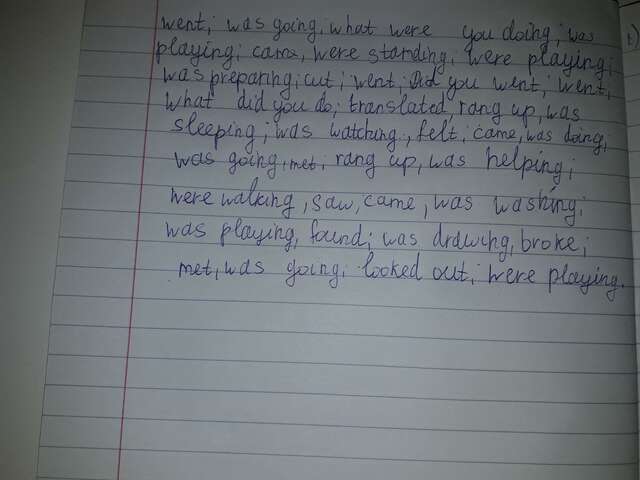 went; was going, what were you doing; was
playing; came, were standing; were playing;
was preparing; cut; went; Did you went; went,
what did you do; translated, rang up, was
sleeping; was watching, felt; came, was doing;
was going, met; rang up, was helping;
were walking, saw, came, was washing;
was playing, found; was drawing, broke;
met, was going; looked out; were playing.